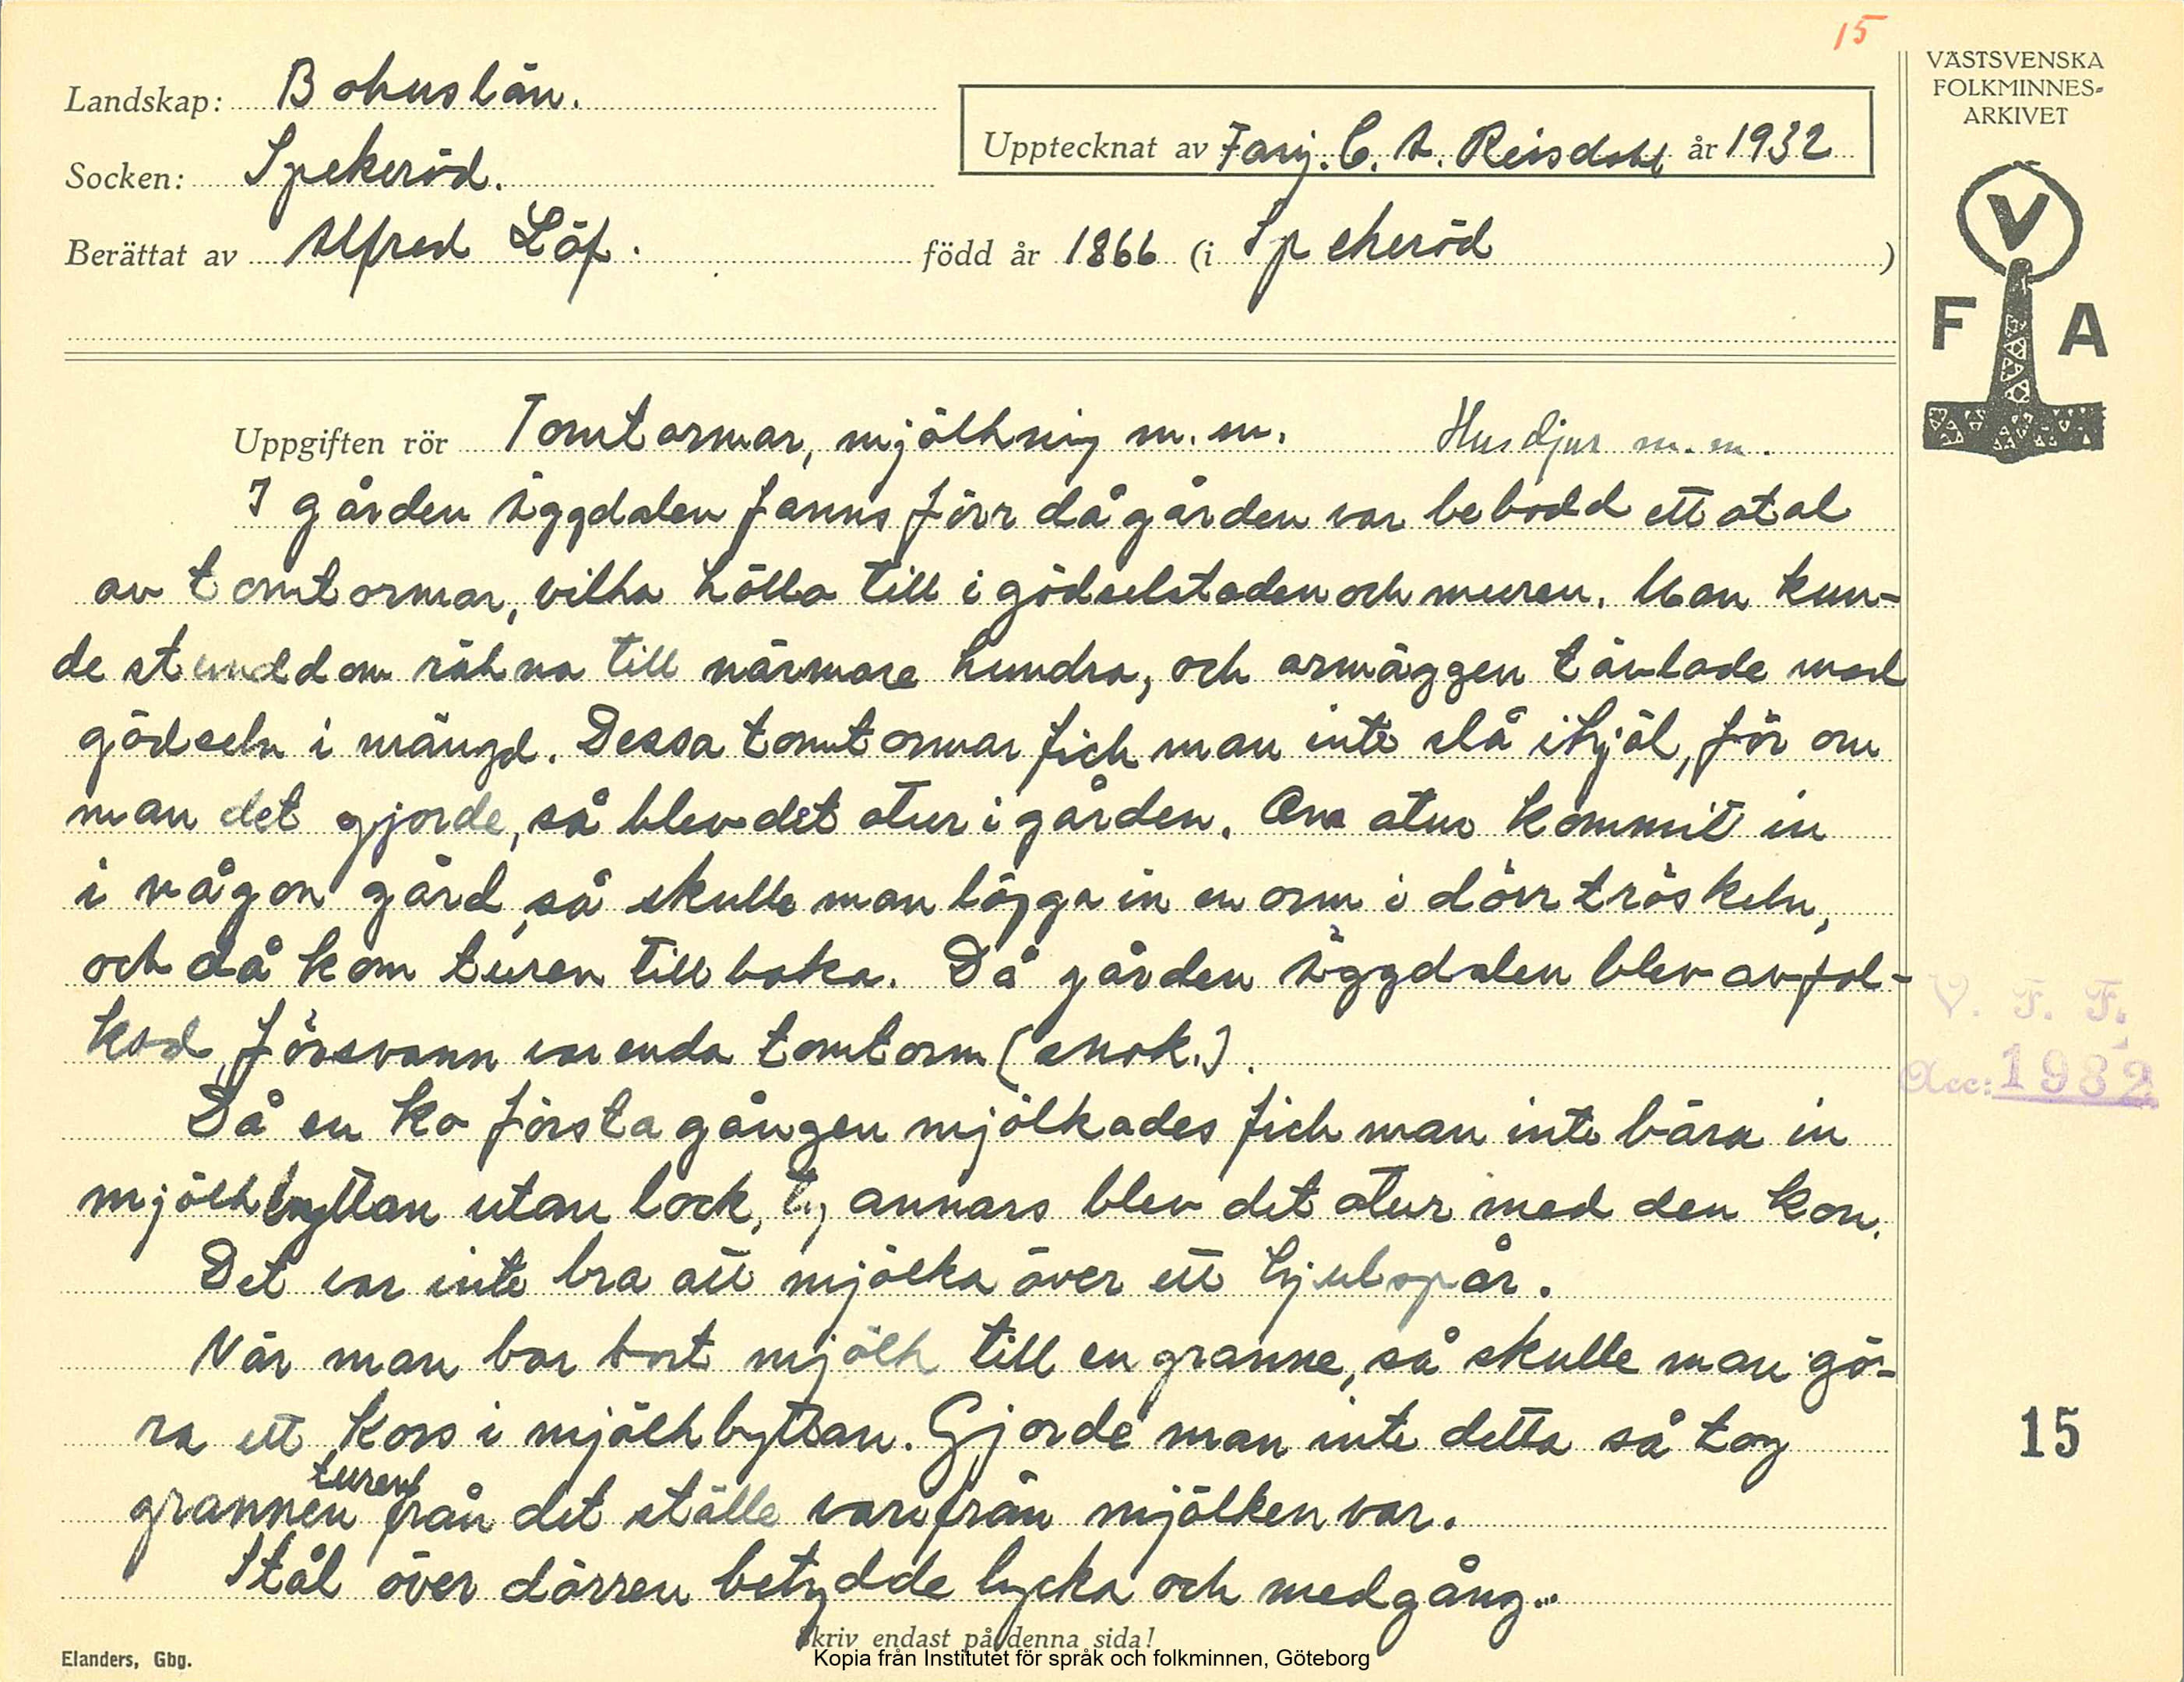 15
VÄSTSVENSKA
FOLKMINNES-
ARKIVET
Landskap: Bohuslän.
Upptecknat av Fanj. C. A. Reisdahl år 1932
Socken: Spekeröd.
Berättat av Alfred Löf. född år 1866 (i Spekeröd)
V
F A
Uppgiften rör Tomtormar, mjölkning m.m. Husdjur m.m.
I gården Äggdalen fanns förr då gården var bebodd ett otal
av tomtormar, vilka höllo till i gödselstaden och muren. Man kun-
de stunddom räkna till närmare hundra, och ormäggen tävlade med
gödseln i mängd. Dessa tomtormar fick man inte slå ihjäl, för om
man det gjorde, så blev det otur i gården. Om otur kommit in
i någon gård, så skulle man lägga in en orm i dörrtröskeln,
och då kom turen tillbaka. Då gården Äggdalen blev avfol-
kad, försvann varenda tomtorm (snok.).
Då en ko första gången mjölkades fick man inte bära in
mjölkbyttan utan lock, ty annars blev det otur med den kon.
Det var inte bra att mjölka över ett hjulspår.
När man bar bort mjölk till en granne, så skulle man gö-
ra ett kors i mjölkbyttan. Gjorde man inte detta så tog
grannen turen från det ställe varifrån mjölken var.
Stål över dörren betydde lycka och medgång.
V. F. F.
Acc: 1932
15
Skriv endast på denna sida!
Elanders, Gbg.
Kopia från Institutet för språk och folkminnen, Göteborg